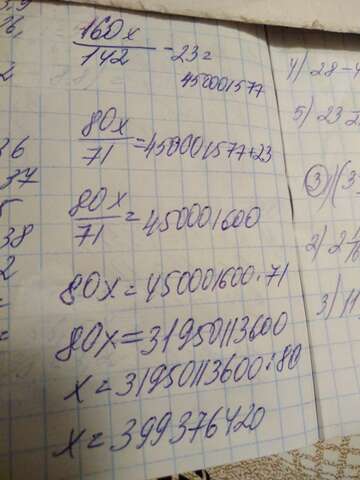 160x
142
-23=
450001577
80x
71
=450001577+23
80x
71
=450001600
80x=450001600·71
80x=31950113600
x=31950113600:80
x=399376420
36
37
5
38
2
4) 28-4
5) 23
3) (3
2) 2
3) 11